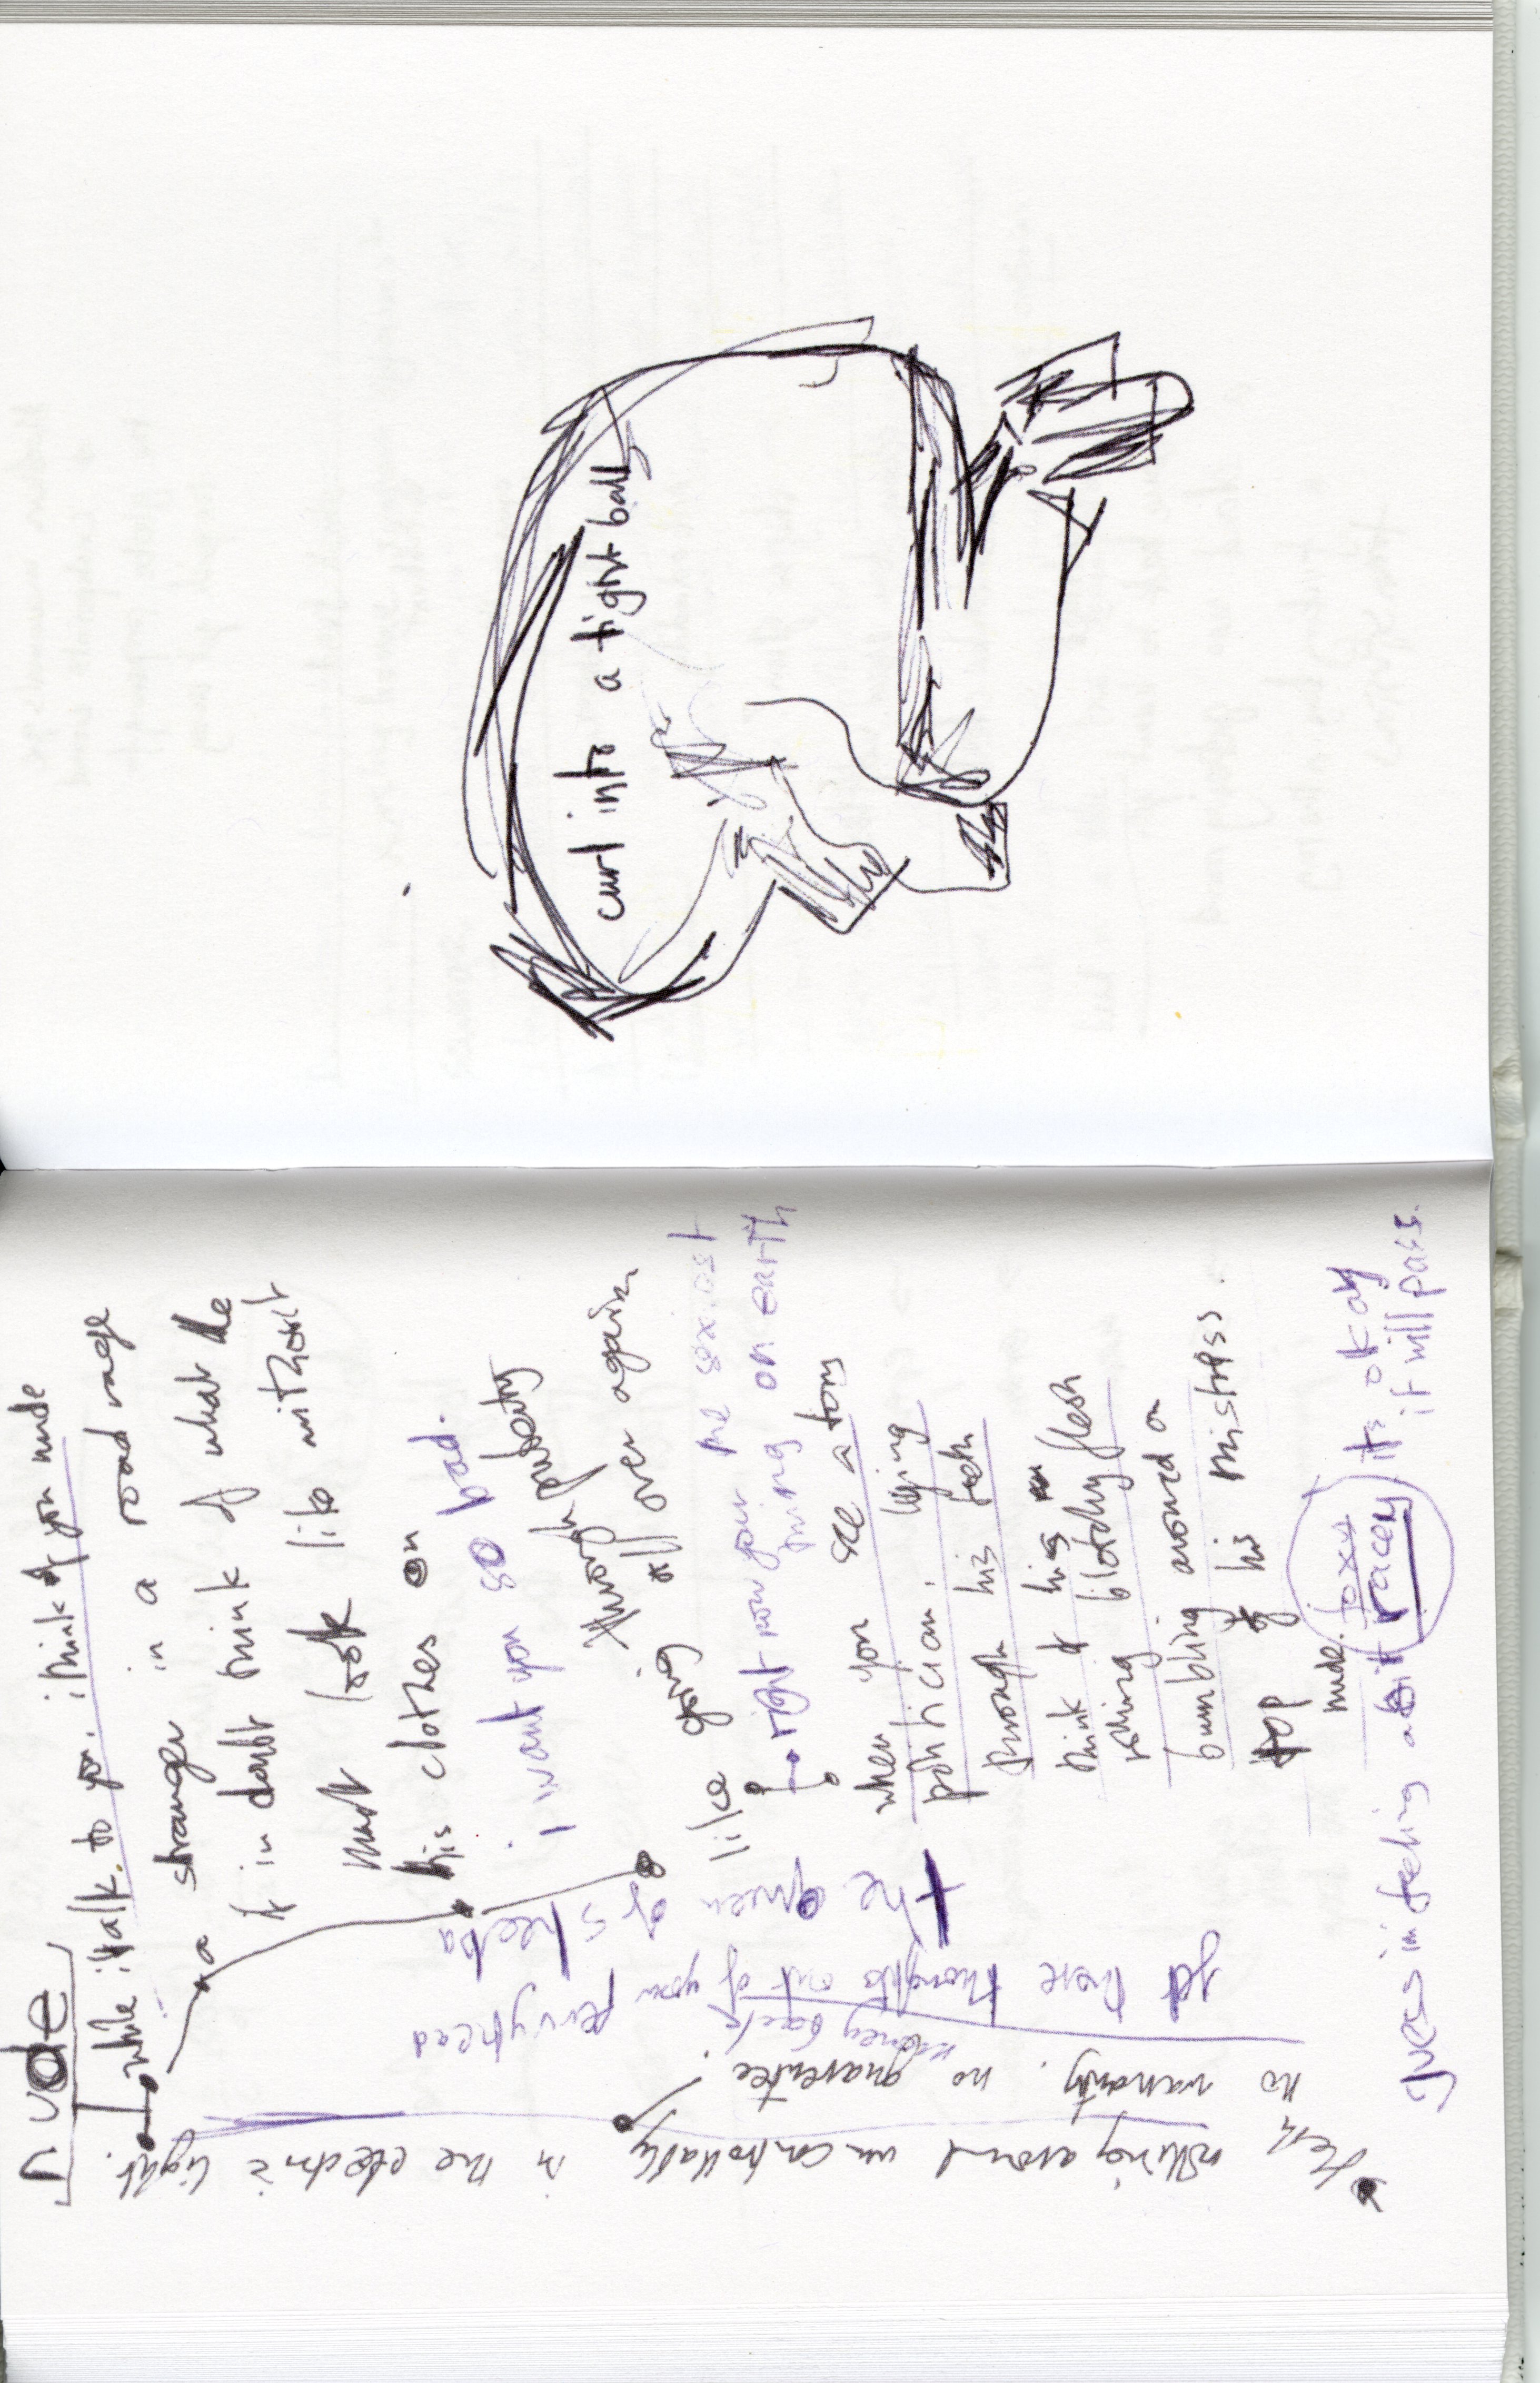 nude
while i talk to you. i think of you nude
a stranger in a road rage
if in doubt think of what he
must look like without
his clothes on
i want you so bad.
like going through puberty
all over again
right now your the sexiest
thing on earth
when you see a tory
politician. lying
through his teeth
think of his
blotchy flesh
rolling around on
bumbling
top of his mistress.
nude.
guess im feeling a bit foxy
racey its okay
it will pass.
the queen
of sheeba
get these thoughts out of your pervy head
no warranty. no money back
guarentee!
rolling around uncontrollably in the electric light.
curl into a tight ball